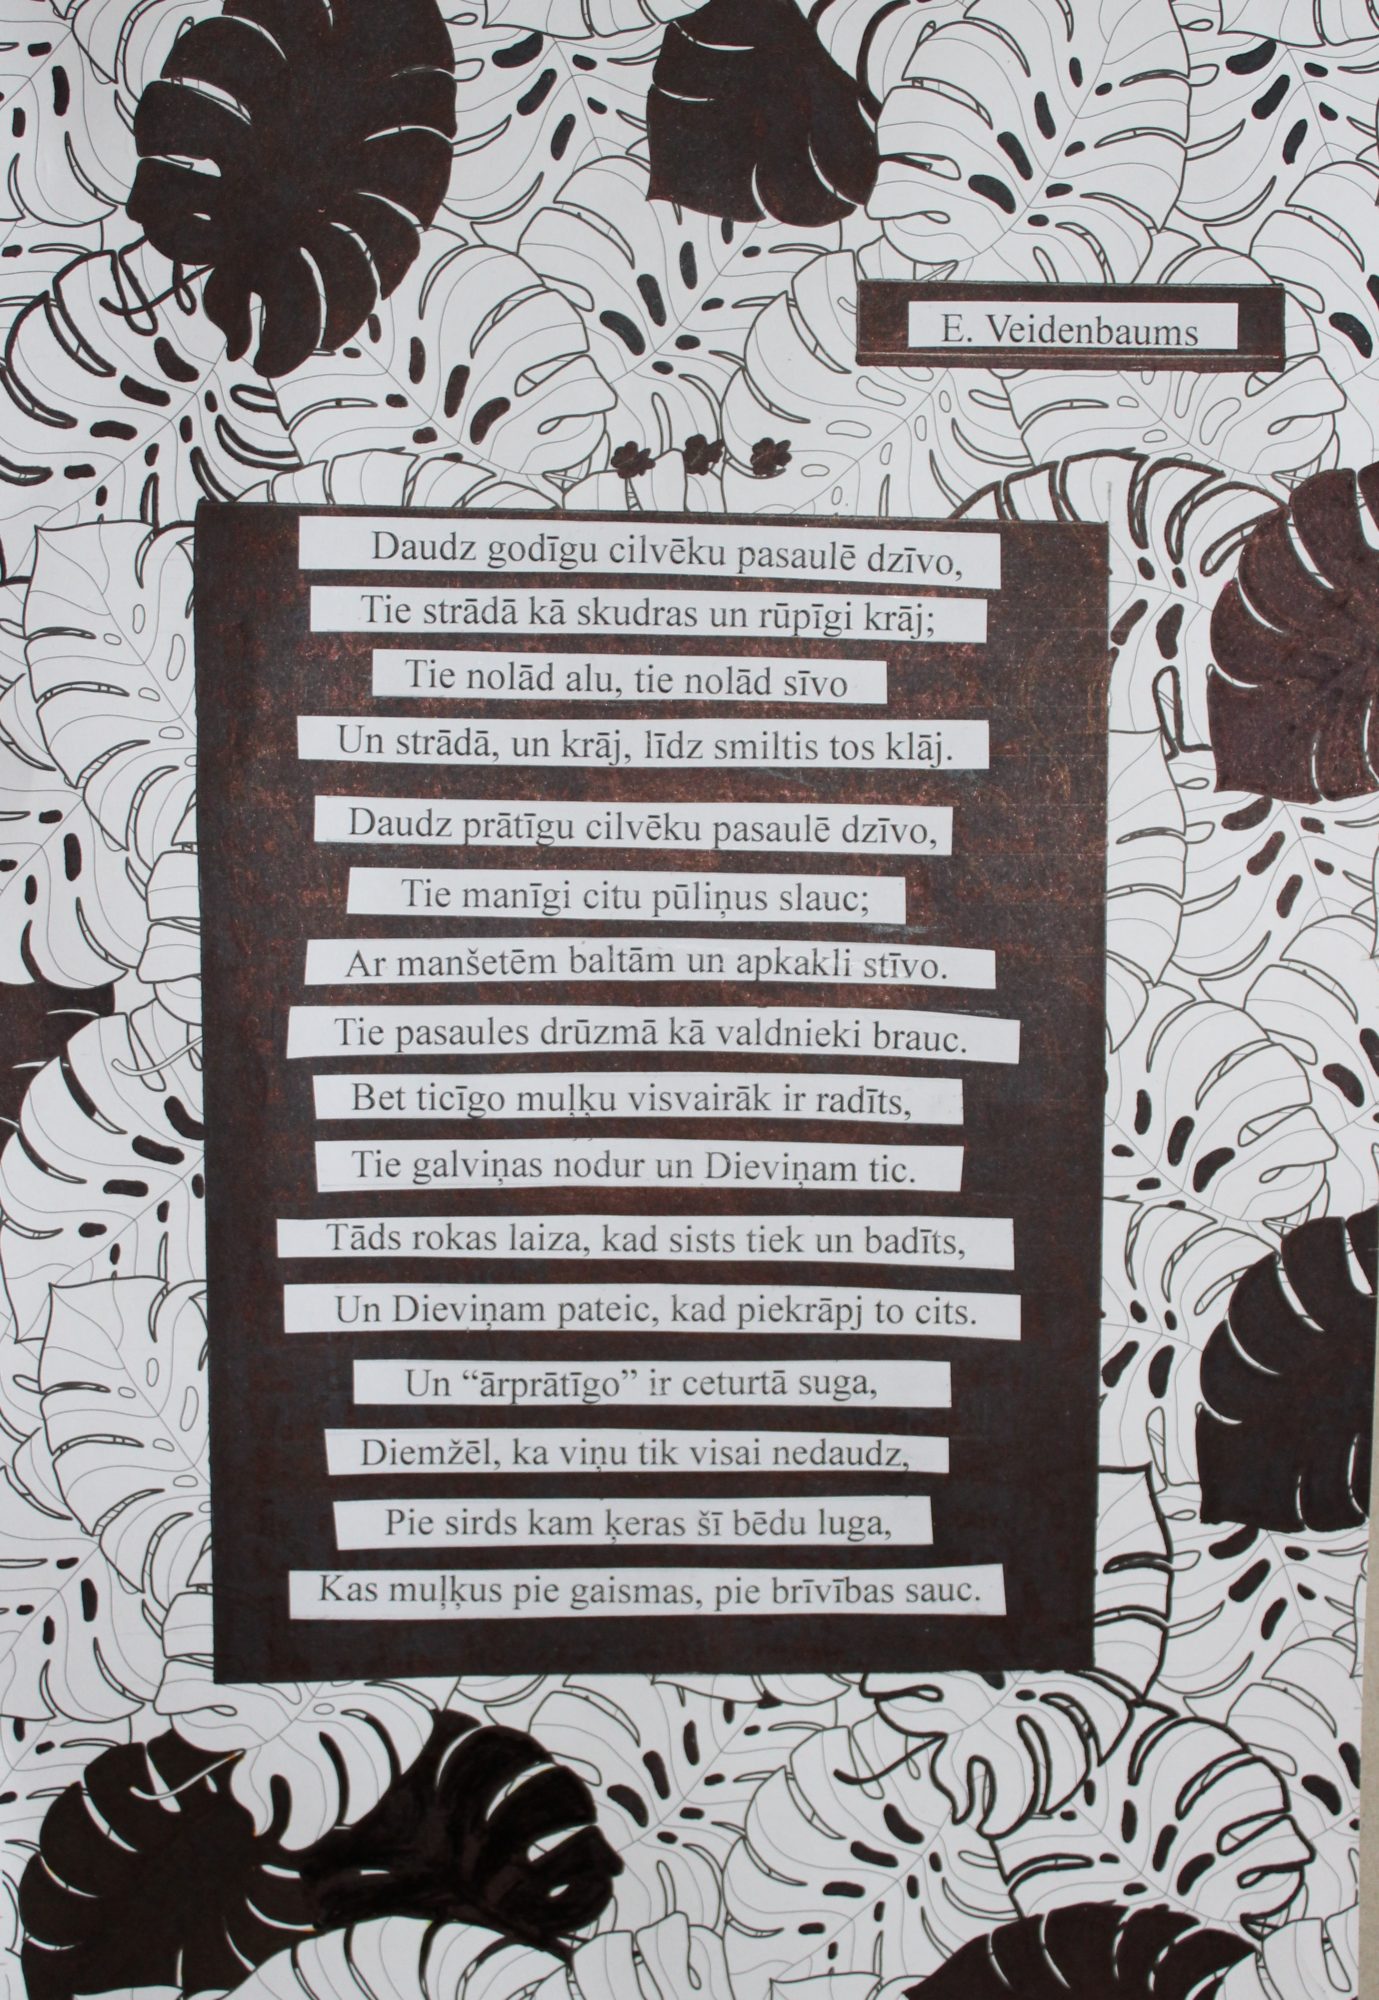 E. Veidenbaums
Daudz godīgu cilvēku pasaulē dzīvo,
Tie strādā kā skudras un rūpīgi krāj;
Tie nolād alu, tie nolād sīvo
Un strādā, un krāj, līdz smiltis tos klāj.
Daudz prātīgu cilvēku pasaulē dzīvo,
Tie manīgi citu pūliņus slauc;
Ar manšetēm baltām un apkakli stīvo.
Tie pasaules drūzmā kā valdnieki brauc.
Bet ticīgo muļķu visvairāk ir radīts,
Tie galviņas nodur un Dieviņam tic.
Tāds rokas laiza, kad sists tiek un badīts,
Un Dieviņam pateic, kad piekrāpj to cits.
Un “ārprātīgo” ir ceturtā suga,
Diemžēl, ka viņu tik visai nedaudz,
Pie sirds kam ķeras šī bēdu luga,
Kas muļķus pie gaismas, pie brīvības sauc.